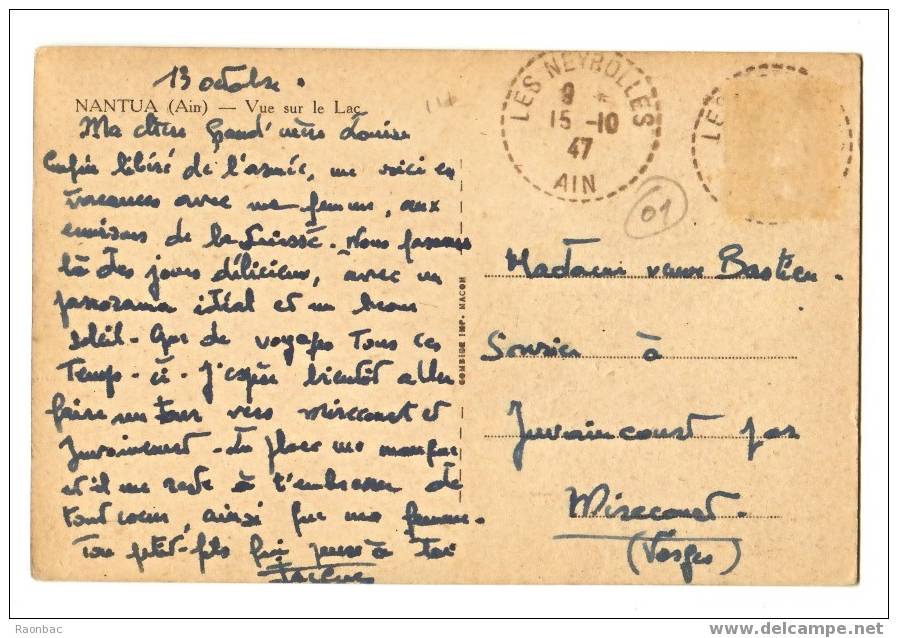 13 octobre.
NANTUA (Ain) — Vue sur le Lac
Ma chère Grand' mère Louise
Enfin libéré de l'armée, me voici en
vacances avec ma femme, aux
environs de la Suisse. Nous passons
là des jours délicieux, avec un
panorama idéal et un beau
soleil - Que de voyages tous ces
Temps-ci - J'espère bientôt aller
faire un tour vers Mirecourt et
Juvaincourt - La place me manque
et il me reste à t'embrasser de
tout coeur, ainsi que ma femme.
Ton petit-fils qui pense à toi
Jacques
COMBIER IMP. MACON
LES NEYROLLES
9 *
15 -10
47
AIN
LES
01
Madame veuve Bastien.
à
Juvaincourt par
Mirecourt.
(Vosges)
Raonbac
www.delcampe.net